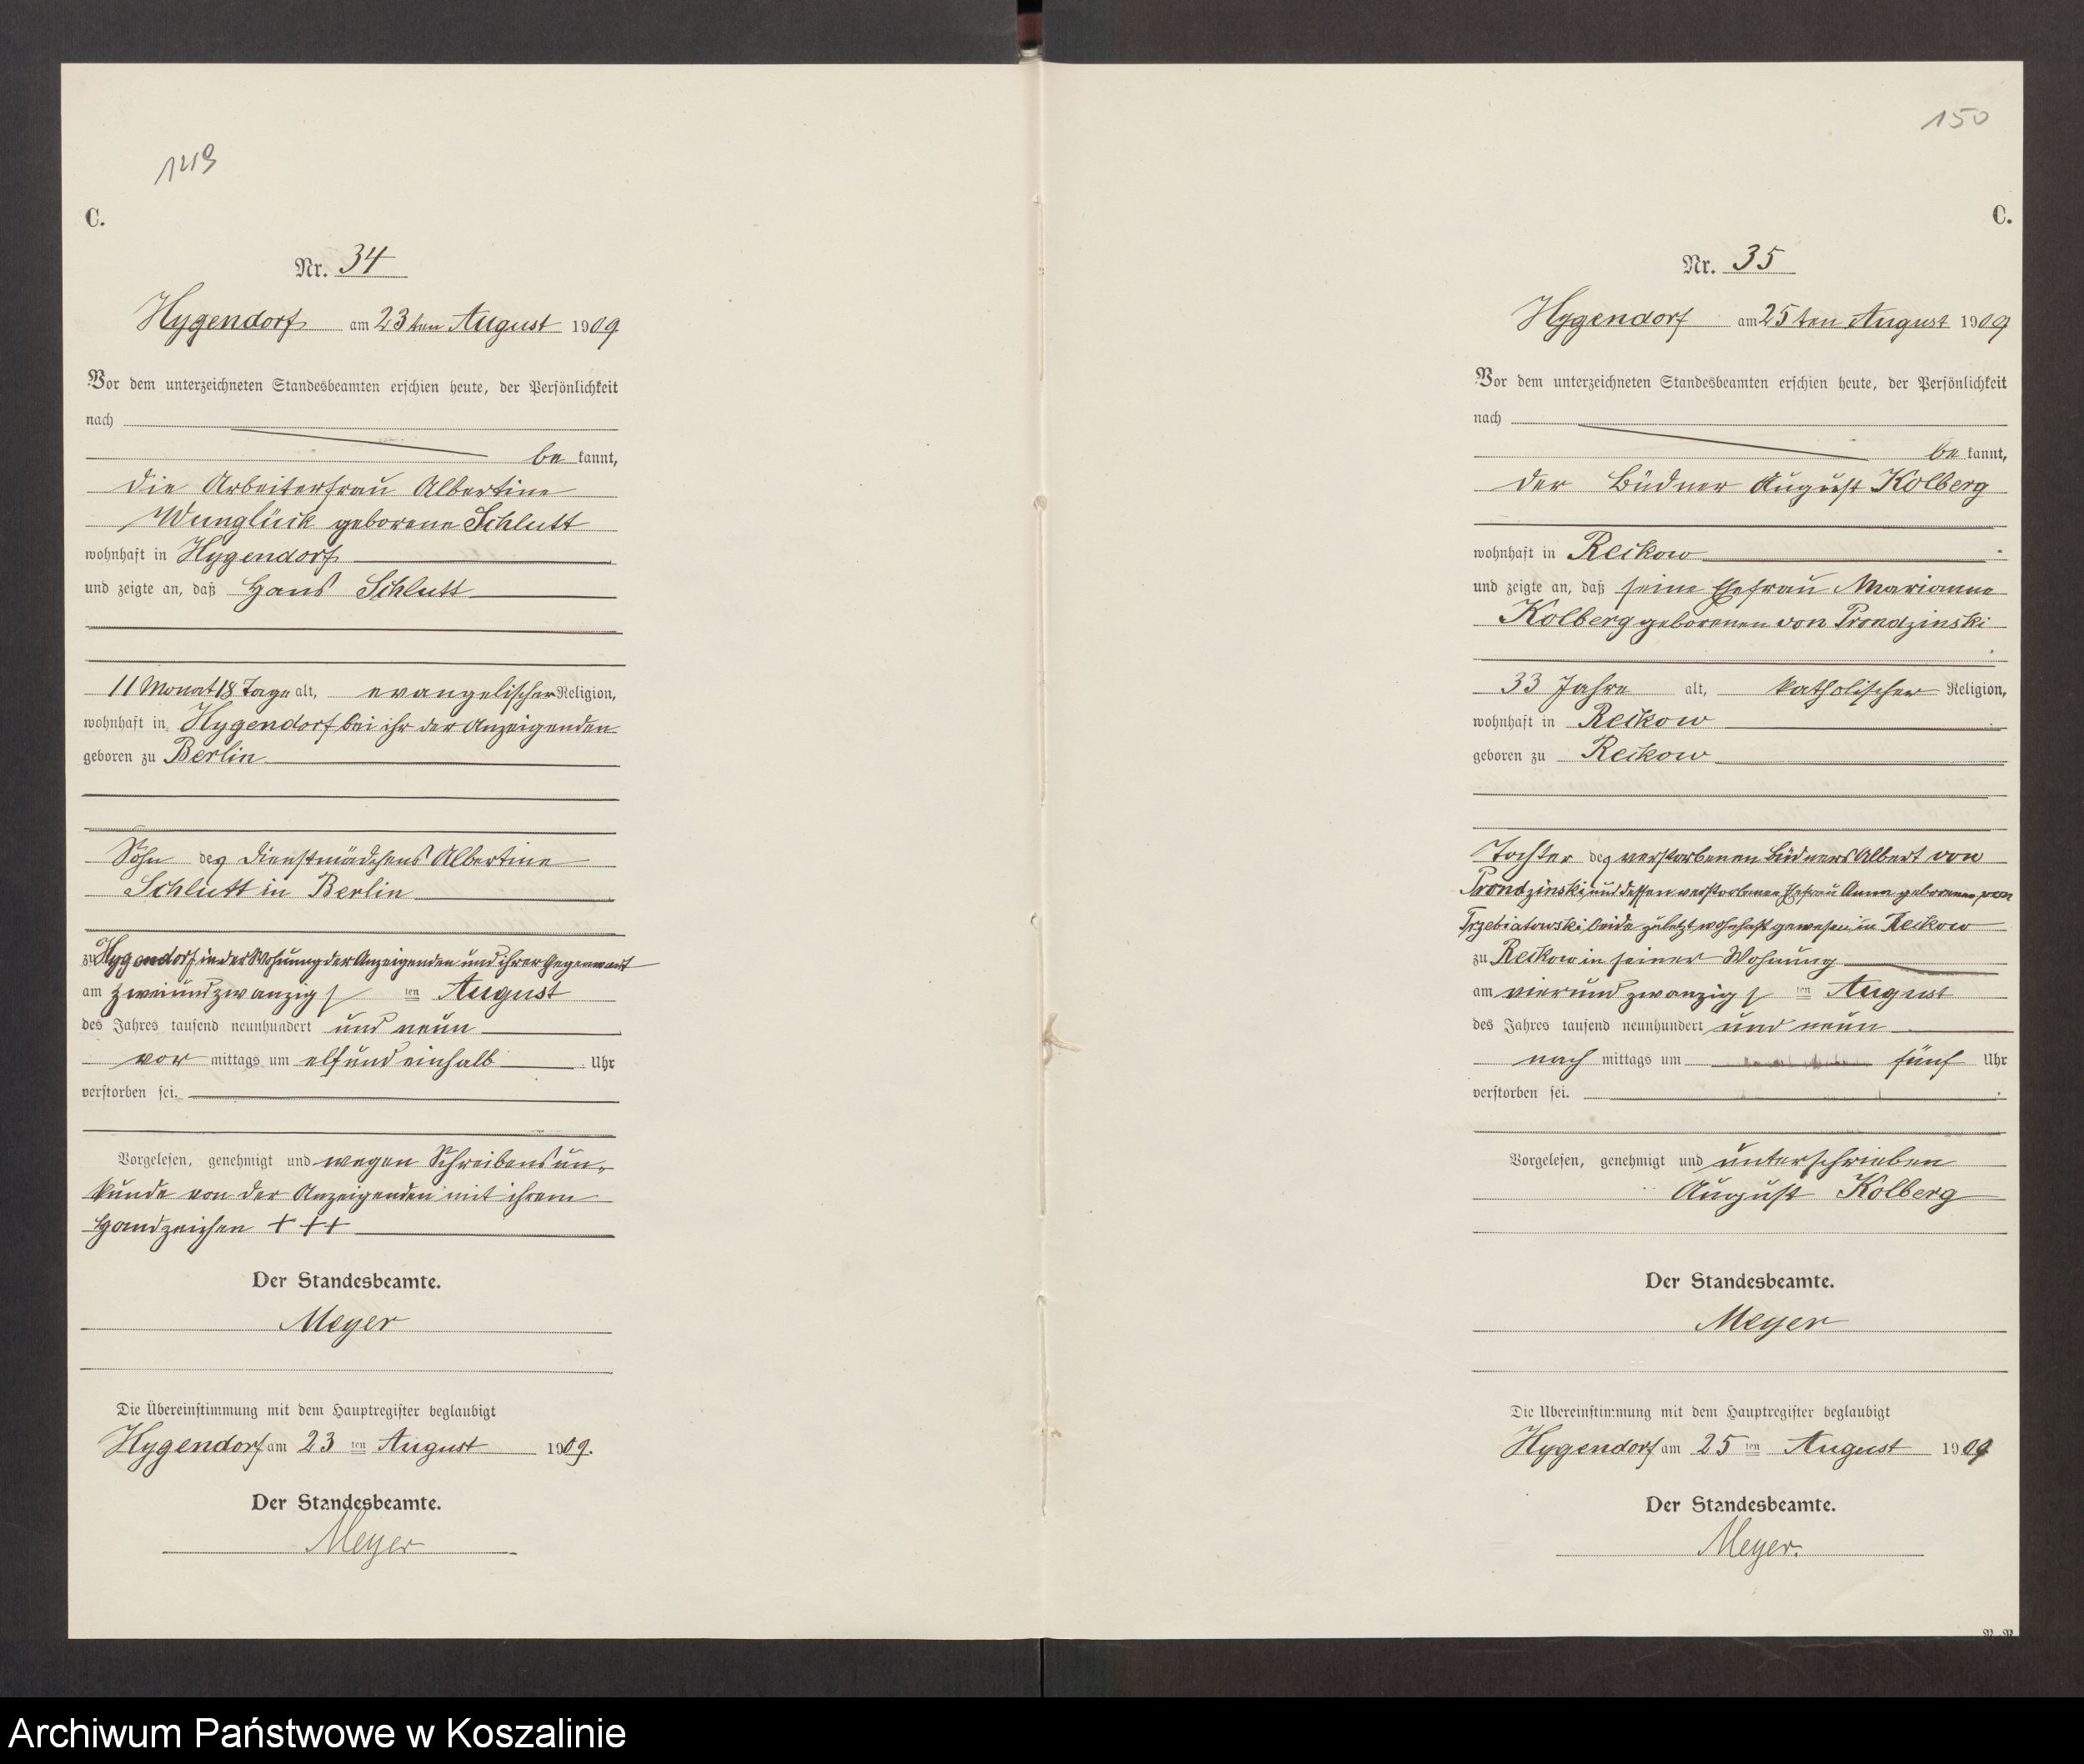 149
C.
Nr. 34
Hygendorf am 23ten August 1909
Vor dem unterzeichneten Standesbeamten erschien heute, der Persönlichkeit
nach
be kannt,
die Arbeiterfrau Albertine
Wunglück geborene Schlutt
wohnhaft in Hygendorf
und zeigte an, daß Hans Schlutt
11 Monat 18 Tage alt, evangelischer Religion,
wohnhaft in Hygendorf bei ihr der Anzeigenden
geboren zu Berlin
Sohn des Dienstmädchens Albertine
Schlutt in Berlin
zu Hygendorf in der Wohnung der Anzeigenden und ihrer Gegenwart
am zweiundzwanzigs ten August
des Jahres tausend neunhundert und neun
vor mittags um elf und einhalb Uhr
verstorben sei.
Vorgelesen, genehmigt und wegen Schreibensun-
kunde von der Anzeigenden mit ihrem
Handzeichen +++
Der Standesbeamte.
Meyer
Die Übereinstimmung mit dem Hauptregister beglaubigt
Hygendorf am 23 ten August 1909.
Der Standesbeamte.
Meyer
150
C.
Nr. 35
Hygendorf am 25ten August 1909
Vor dem unterzeichneten Standesbeamten erschien heute, der Persönlichkeit
nach
be kannt,
der Büdner August Kolberg
wohnhaft in Reckow
und zeigte an, daß seine Ehefrau Marianne
Kolberg geborenen von Prondzinski
33 Jahre alt, katholischer Religion,
wohnhaft in Reckow
geboren zu Reckow
Tochter des verstorbenen Büdners Albert von
Prondzinski und dessen verstorbene Ehefrau Anna geborenen von
Trzebiatowski beide zuletzt wohnhaft gewesen in Reckow
zu Reckow in seiner Wohnung
am vierundzwanzigs ten August
des Jahres tausend neunhundert und neun
nach mittags um fünf Uhr
verstorben sei.
Vorgelesen, genehmigt und unterschrieben
August Kolberg
Der Standesbeamte.
Meyer
Die Übereinstimmung mit dem Hauptregister beglaubigt
Hygendorf am 25 ten August 1909
Der Standesbeamte.
Meyer.
Archiwum Państwowe w Koszalinie